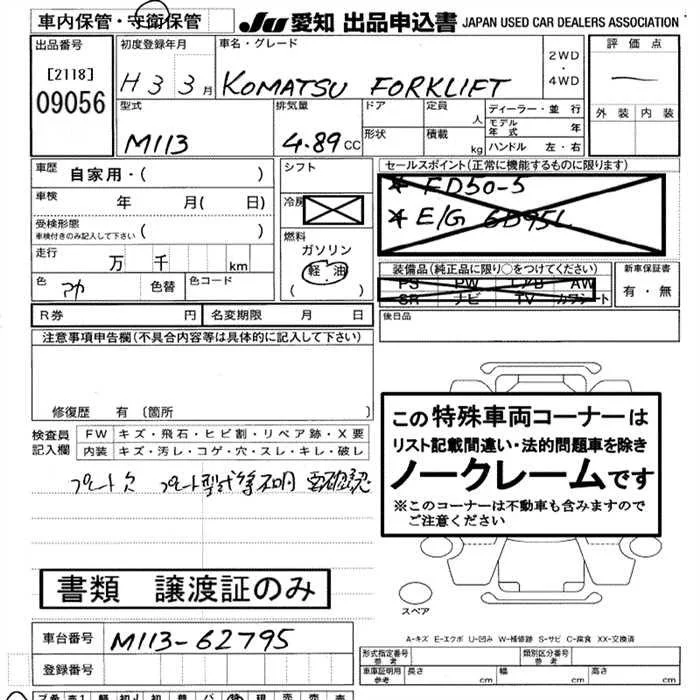 車内保管・守衛保管
JU 愛知 出品申込書 JAPAN USED CAR DEALERS ASSOCIATION
出品番号
[2118]
09056
初度登録年月
H33月
車名・グレード
KOMATSU FORKLIFT
2WD
・
4WD
評価点
外装 内装
型式
M113
排気量
4.89cc
ドア
形状
定員
人
積載
kg
ディーラー・並行
モデル年式 年
ハンドル 左・右
車歴
自家用・( )
車検
年 月( 日)
受検形態
車検付きのみ記入して下さい ( )
走行
万 千 km
色
アカ
色替
色コード
シフト
冷房
燃料
ガソリン
軽油
( )
セールスポイント(正常に機能するものに限ります)
* FD50-5
* E/G 6D95L
装備品(純正品に限り○をつけてください)
PS PW エアB AW
SR ナビ TV カワシート
新車保証書
有・無
R券 円
名変期限 月 日
後日品
注意事項申告欄(不具合内容等は具体的に記入して下さい)
修復歴 有〔箇所 〕
検査員記入欄
FW キズ・飛石・ヒビ割・リペア跡・X要
内装 キズ・汚レ・コゲ・穴・スレ・キレ・破レ
プレート欠 プレート型式等不明 要確認
この特殊車両コーナーは
リスト記載間違い・法的問題車を除き
ノークレームです
※このコーナーは不動車も含みますので
ご注意ください
書類 譲渡証のみ
スペア
A-キズ E-エクボ U-凹み W-補修跡 S-サビ C-腐食 XX-交換済
車台番号
M113-62795
登録番号
形式指定番号
参考
類別区分番号
参考
車庫証明用
参考
長さ cm
幅 cm
高さ cm